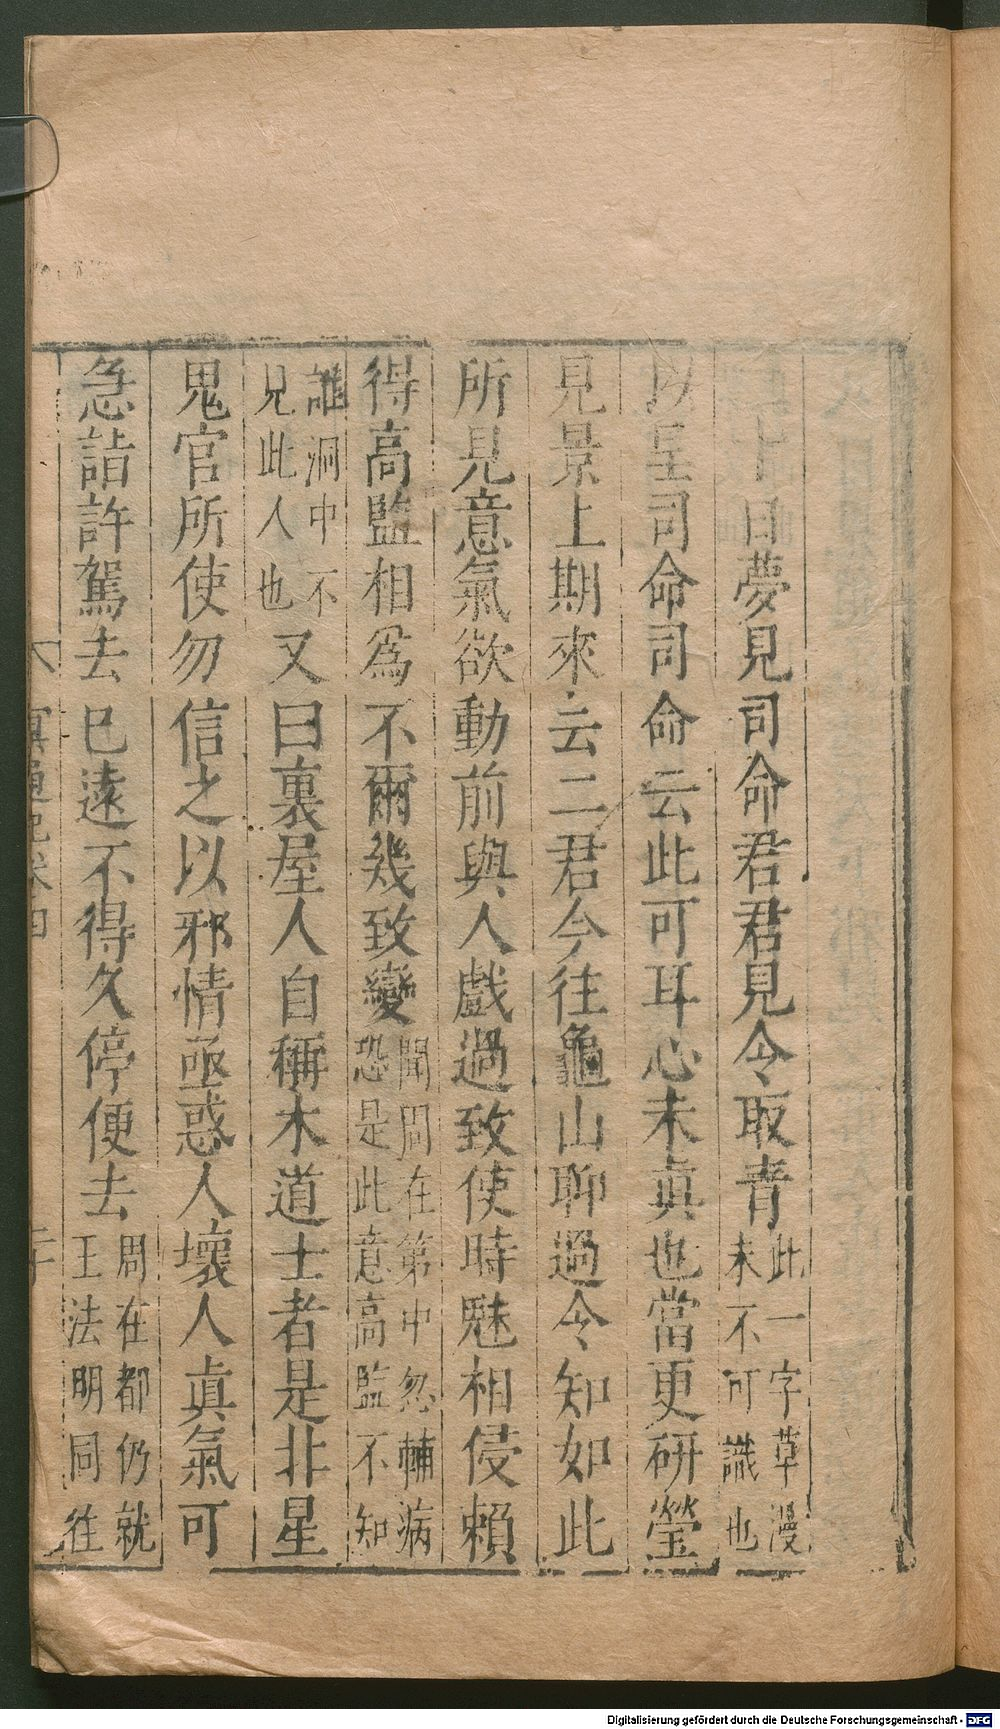 十日夢見司命君君見令取青此一字草漫未不可識也
以呈司命司命云此可耳心未眞也當更研瑩
見景上期來云二君今往龜山聊過令知如此
所見意氣欲動前與人戲過致使時魅相侵賴
得高監相爲不爾幾致變聞周在第中忽輔病恐是此意高監不知
誰洞中不見此人也又曰裏屋人自稱木道士者是北星
鬼官所使勿信之以邪情亟惑人壞人眞氣可
急詣許駕去巳遠不得久停便去周在都仍就王法明同往
冥通記卷四
Digitalisierung gefördert durch die Deutsche Forschungsgemeinschaft - DFG